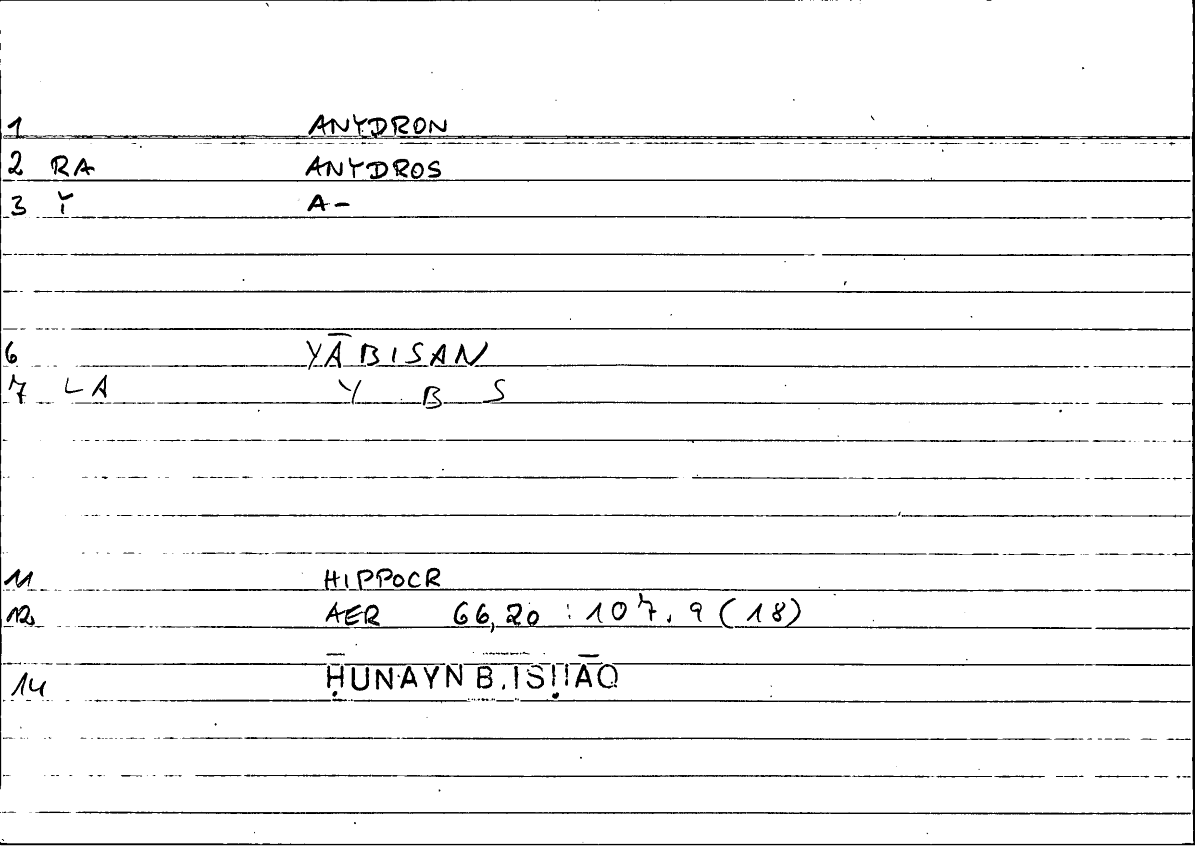 1 ANYDRON
2 RA ANYDROS
3 Y A-
6 YĀBISAN
7 LA Y B S
11 HIPPOCR
12 AER 66,20 : 107,9 (18)
14 ḤUNAYN B.ISḤĀQ